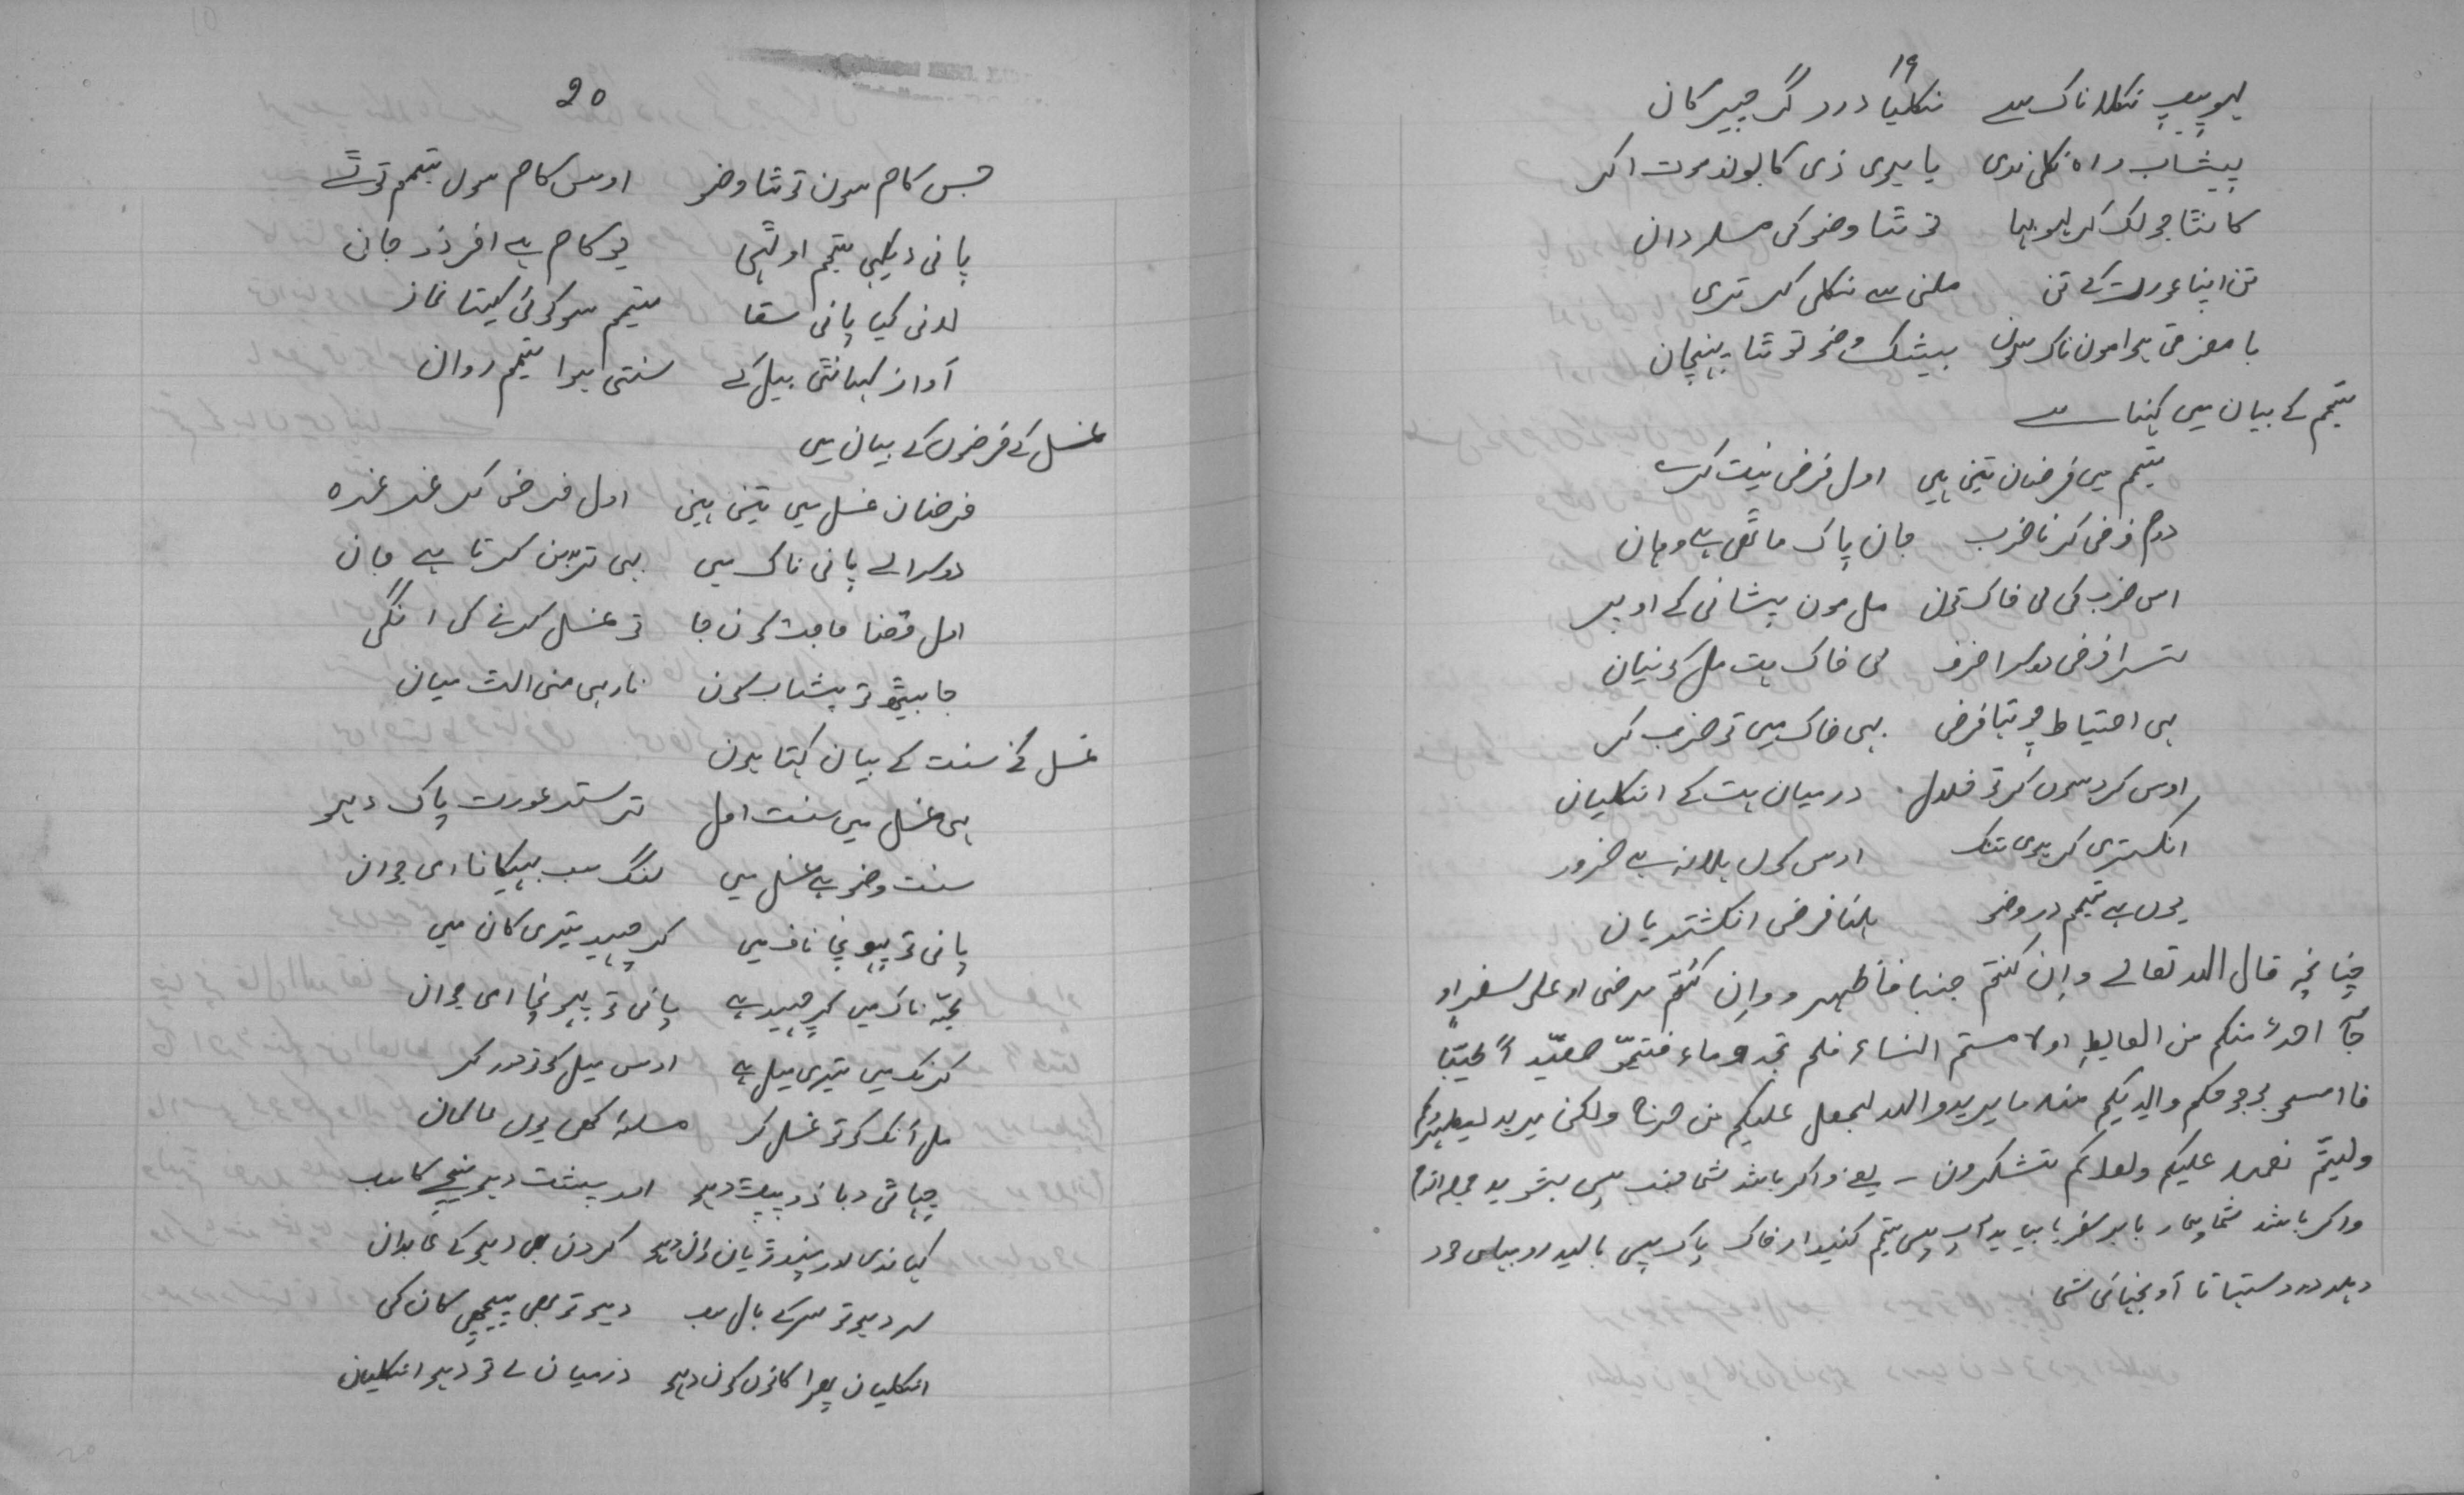 ۱۹
لہو پیپ نکلا ناک سے نکلیا درد گر چپیر کان
پیشاب راہ نکلی ندی یا میری ذی کا بوند موت اکر
کانٹا جو لک کر لہو بہا تو ٹٹا وضو کی مسلہ دان
تن اپنا عورت کے تن ملنی سے نکلی کر تری
با مغز قی ہوا مون ناک سون بیشک وضو توٹتا پہنچان
تیمم کے بیان میں کہتا ہے
تیمم میں فرضان تین ہیں اول فرض نیت کرے
دوم فرض کرنا ضرب جان پاک ماٹی ہے وہان
اس ضرب کی لی خاک تون مل مون پیشانی کے اوپر
تسرا فرض دوسرا ضرب لی خاک ہت مل کونیان
ہی احتیاط چوتہا فرض بہی خاک میں تو ضرب کر
اوس کرد سون کر تو خلال درمیان ہت کے انکلیان
انکستری کر ہوی تنک اوس کون ہلانہ ہے ضرور
یون ہے تیمم در وضو ہلنا فرض انکشتریان
چنانچہ قال اللہ تعالے وان کنتم جنبا فاطہرو وان کنتم مرضی او علی سفر او
جآ احدٌ منکم من الغایط او لا مستم النساء فلم تجدو ماء فتیمّو صعیداً طیّبًا
فاامسحو بوجوھکم وایدیکم منہ ما یریدو اللہ لیجعل علیکم من حرج ولکن یرید لیطہرکم
ولیتّم نعمہ علیکم ولعلکم تشکرون - یعنے واکر باشد شما جنب پس بشوید جملہ اندام
واکر باشد شما بیمار یا بر سفر یا بیابید آب پس تیمم کنید از خاک پاک پس بالید رو بہاس خود
دہلد درد ستہا تا آو نجہائی شی
20
جس کام سون توٹتا وضو اوس کام سون تیمم توٹے
پانی دیکہی تیمم اوٹہی یو کام ہے افرذر جان
لانی کیا پانی سقا تیمم سو کوئی کیتا نماز
آواز کہانٹی بیل کے سنتی ہوا تیمم روان
غسل کے فرضون کے بیان میں
فرضان غسل میں تین ہین اول فرض کر غر غرہ
دوسرا لے پانی ناک میں بہی تربن کرتا ہے جان
اول قضا حاجت کون جا تو غسل کرنے کی انگی
جا بیٹھ تو پشاب کون نارہی منی الت میان
غسل کے سنت کے بیان کہتا ہون
ہی غسل میں سنت اول تر ستر عورت پاک دہو
سنت وضو ہے غسل میں لنگ سب بہیکانا ای جوان
پانی تو پہونچا ناف میں کر چہید تیری کان میں
تجہ ناک میں کر چہید ہے پانی تو پہونچا ای جوان
کرنک میں تیری میل ہے اوس میل کو تو دور کر
مل آنک کو تو غسل کر مسلہ کھی یون عالمان
چہاتی و بازو پیٹ دہو اور پیشت دہو نیچے کا سب
کہاندی اور پنڈریان ران دہو کردن بہی دہو کے عابدان
سر دہو تو سر کے بال سب دہو تو بھی پیچھی کان کی
انکلیان پھرا کانون کون دہو درمیان لے تو دہو انکلیان